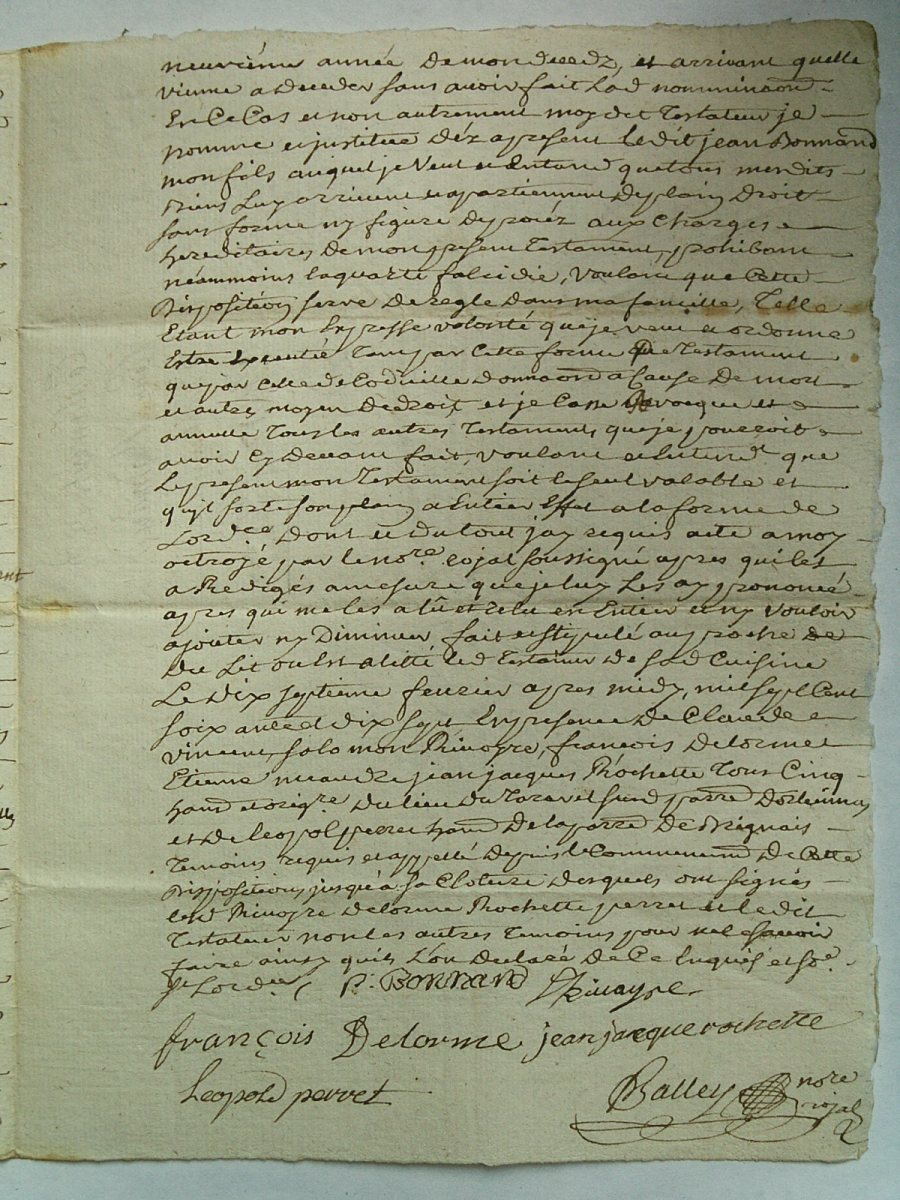 neuvième année de mon decedz, et arrivant quelle
vienne a deceder sans avoir fait lad nominaõn
En Ce Cas et non autrement moy dit Testateur je
nomme et jnstitue déz apresent le dit jean Bonnand
mon fils auquel je Veut et Entand que tous mesdits
biens luy arrivent et apartiennent de plain Droit
sans forme ny figure de procéz aux Charges
hereditaires de mon present Testament, prohibant
néammoins la quarte falcidie, Voulant que Cette
Disposition serve de regle dans ma famille, Telle
Etant mon Expresse volonté que je veut et ordonne
Estre Executée Tant par Cette forme de Testament
que par Celle de Codicille donnaõn a Cause de mort
et autre moyen de droit, et je Casse revocque et
annulle Tous les autres Testaments que je pourroit
avoir Cy devant fait, voulant et Entend que
le present mon Testament soit le seul valable et
qu'jl sorte son plain et Entier Effet a la forme de
Lordce Dont et du tout jay requis acte a moy
octroyé par le nore rojal soussigné apres qu'il les
a Redigés a mesure que je luy les ay prononcé
apres qui me les a lû et relu en Entier et ny vouloir
ajouter ny Diminuer fait et stipulé au proche de
Du Lit ou Est alitté led Testateur de sad Cuisine
Le Dix septieme fevrier apres midy, mil sept Cent
soixante et dix sept En presence de Claude
vincent, salomon Rivoyre, françois Delorme
Etienne jean jacques Rochette Tous Cinq
hand et orige du lieu du sur d parre
et de leopol perret hand de la parre De Brignais
Temoins requis et appellé depuis le Commencemd de Cette
Disposition jusqu'à sa Cloture desquels ont signés
lesd Rivoyre Delorme Rochette perret et le dit
Testateur non les autres temoins pour ne le savoir
faire ainsy quils l'on declaré de Ce Enquis et so.e
st Lordce
P. BONNAND Rivoyre
françois Delorme jean jacque rochette
Leopold perret Balley nore
rojal